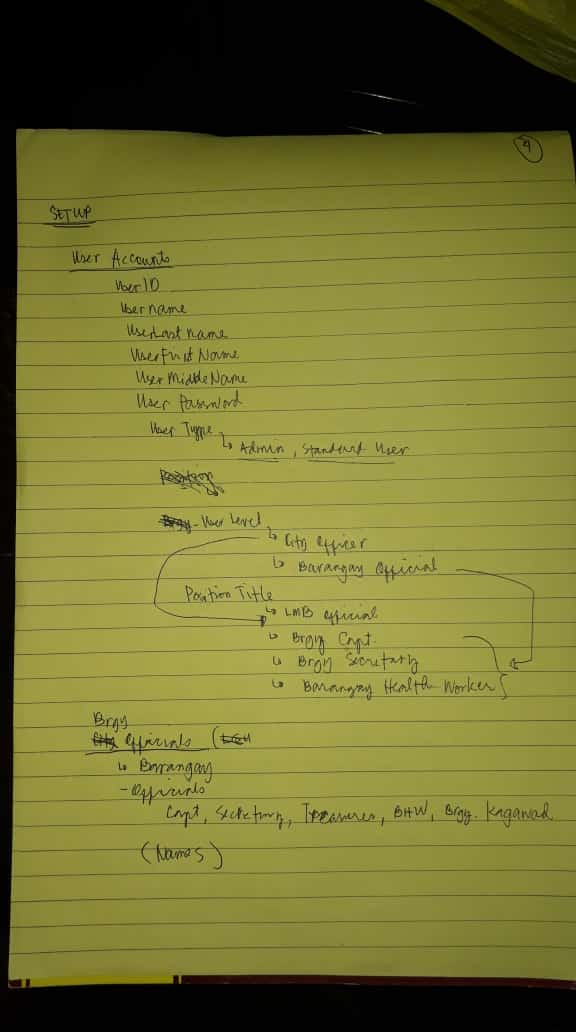 4
SETUP
User Accounts
UserID
Username
UserLast name
UserFirst Name
UserMiddleName
User Password
User Type
Admin, Standard User
Position
Brgy - User Level
City Officer
Barangay Official
Position Title
LMB Official
Brgy Capt.
Brgy Secretary
Barangay Health Worker
Brgy
City Officials (
Barangay
- Officials
Capt, Secretary, Treasurer, BHW, Brgy. Kagawad
(Names)